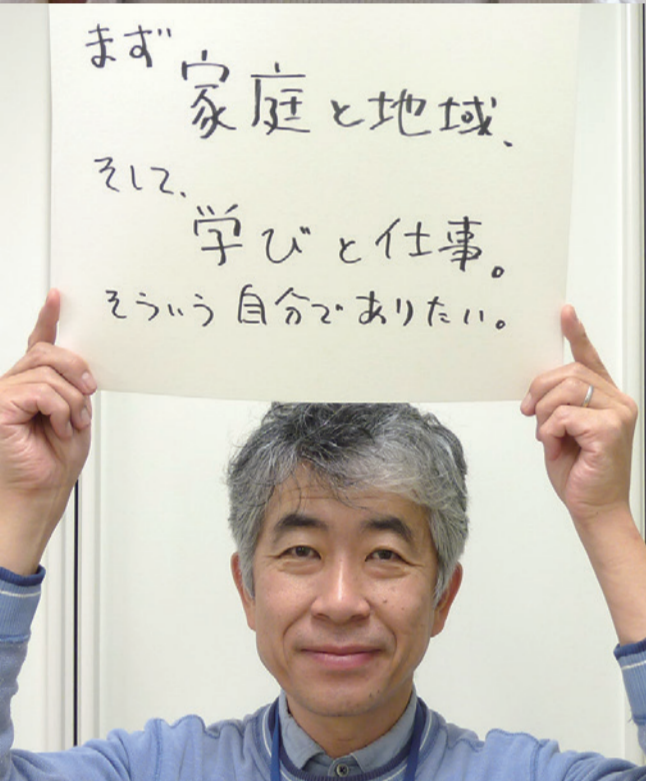 まず
家庭と地域、
そして、
学びと仕事。
そういう自分でありたい。